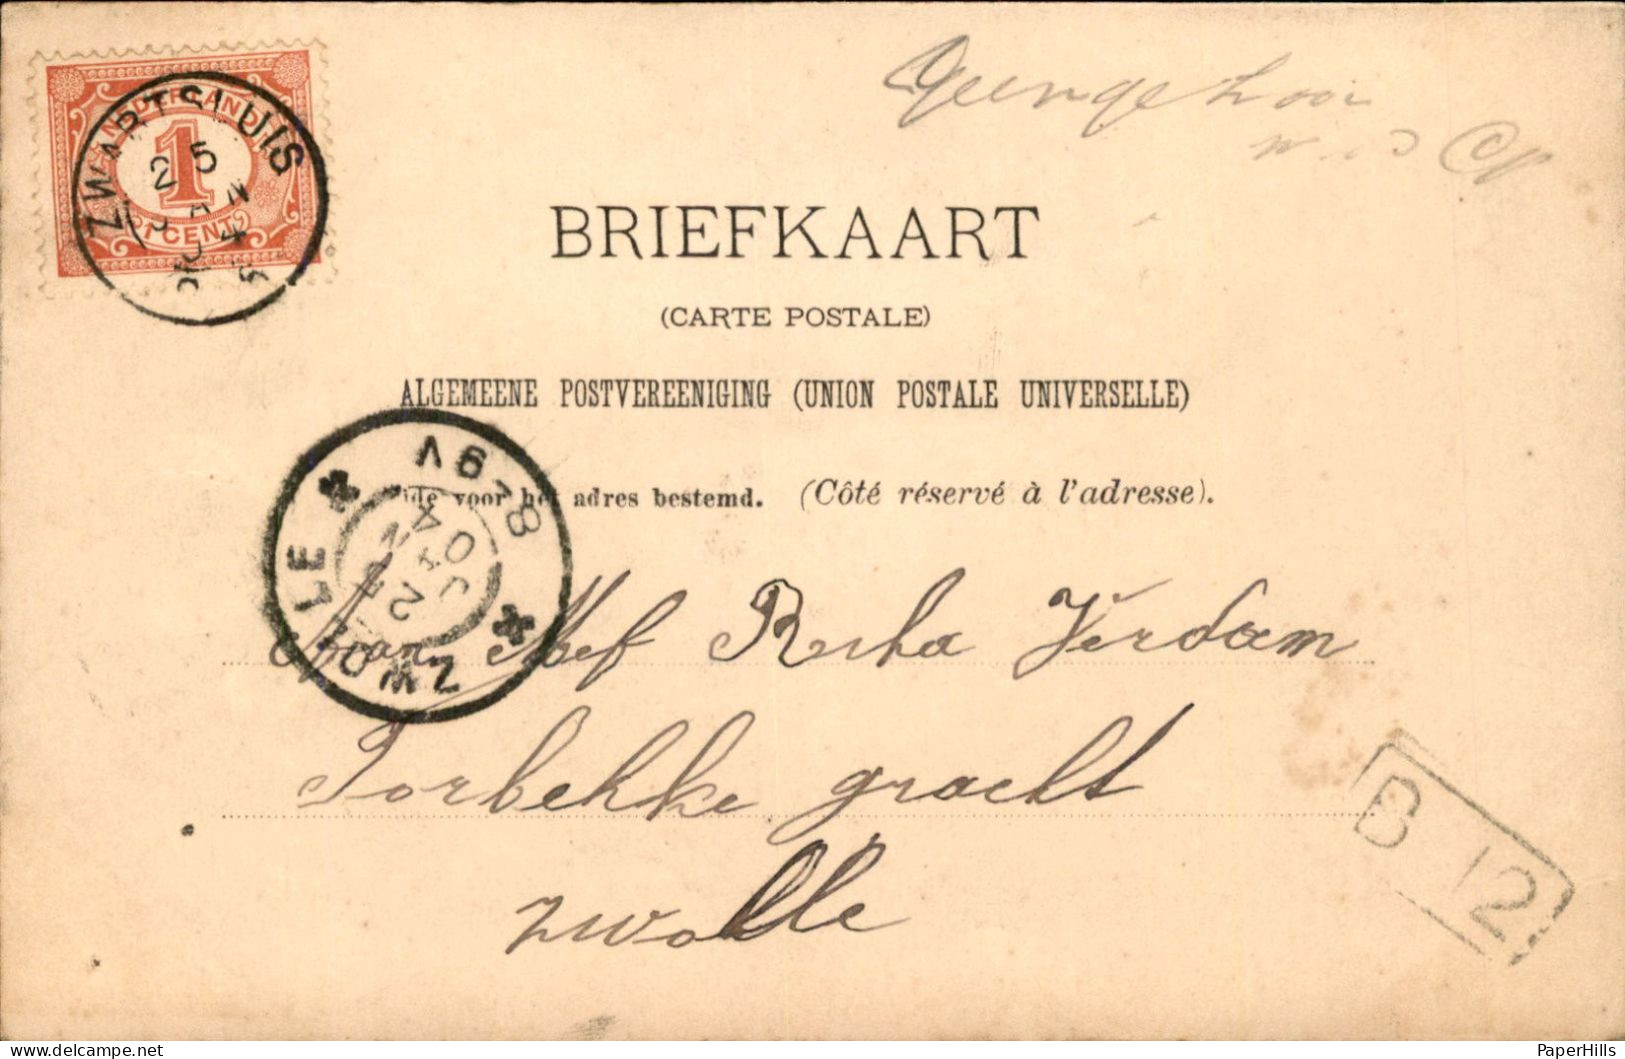 NEDERLAND
1
CENT
ZWARTSLUIS
25
JAN
04
BRIEFKAART
(CARTE POSTALE)
ALGEMEENE POSTVEREENIGING (UNION POSTALE UNIVERSELLE)
voor het adres bestemd. (Côté réservé à l'adresse).
ZWOLLE
8.19V
JAN
04
Aan Mef Verdam
Torbekke gracht
Zwolle
B 12
PaperHills